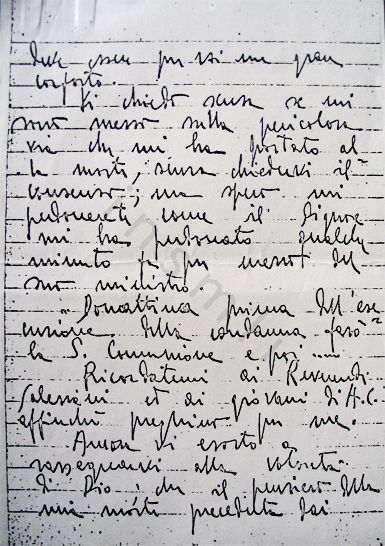 deve essere per voi un gran
conforto.
Vi chiedo scusa se mi
sono messo sulla pericolosa
via che mi ha portato al
la morte, senza chiedervi il
consenso; ma spero mi
perdonerete come il Signore
mi ha perdonato qualche
minuto fa per mezzo del
suo ministro.
Domattina prima dell'ese
cuzione della condanna farò
la S. Comunione e poi .....
Ricordatemi ai Reverendi
Salesiani et ai giovani di A.C.
affinché preghino per me.
Ancora vi esorto a
rassegnarvi alla volontà
di Dio; che il pensiero della
mia morte preceduta dai